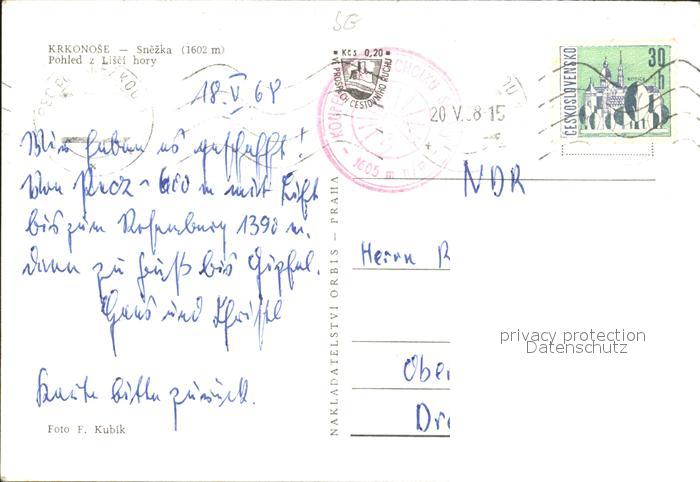 SG
KRKONOŠE — Sněžka (1602 m)
Pohled z Liščí hory
Kčs 0,20
VE PROSPĚCH CESTOVNÍHO RUCHU
20 V. 8-15
ČESKOSLOVENSKO
30 h
KOŠICE
1605 m
18. V. 68
Wir haben es geschafft!
Von Pecz - 600 m mit Lift
bis zum Rosenburg 1390 m.
dann zu Fuß bis Gipfel.
Hans und Christl
Karte bitte zurück.
NDR
Herrn R
Ober
Dre
NAKLADATELSTVÍ ORBIS — PRAHA
Foto F. Kubík
privacy protection
Datenschutz